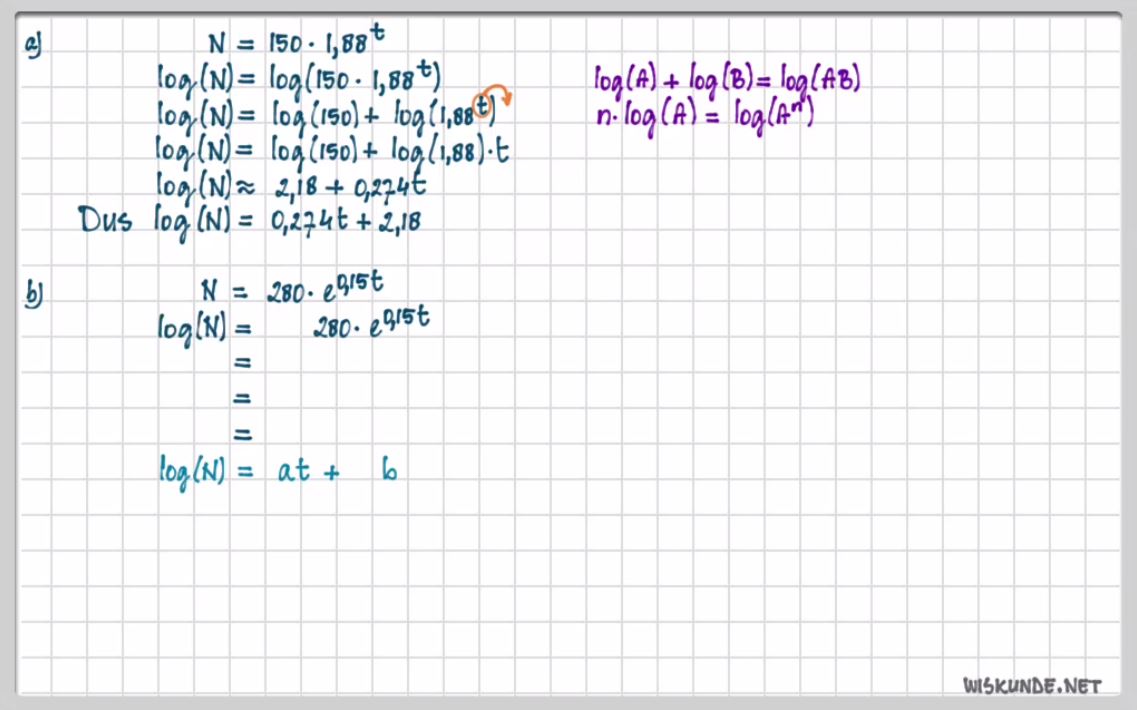 a) N = 150 · 1,88^t
log(N) = log(150 · 1,88^t)
log(N) = log(150) + log(1,88^t)
log(N) = log(150) + log(1,88) · t
log(N) ≈ 2,18 + 0,274t
Dus log(N) = 0,274t + 2,18
log(A) + log(B) = log(AB)
n · log(A) = log(A^n)
b) N = 280 · e^0,15t
log(N) = 280 · e^0,15t
=
=
=
log(N) = at + b
WISKUNDE.NET